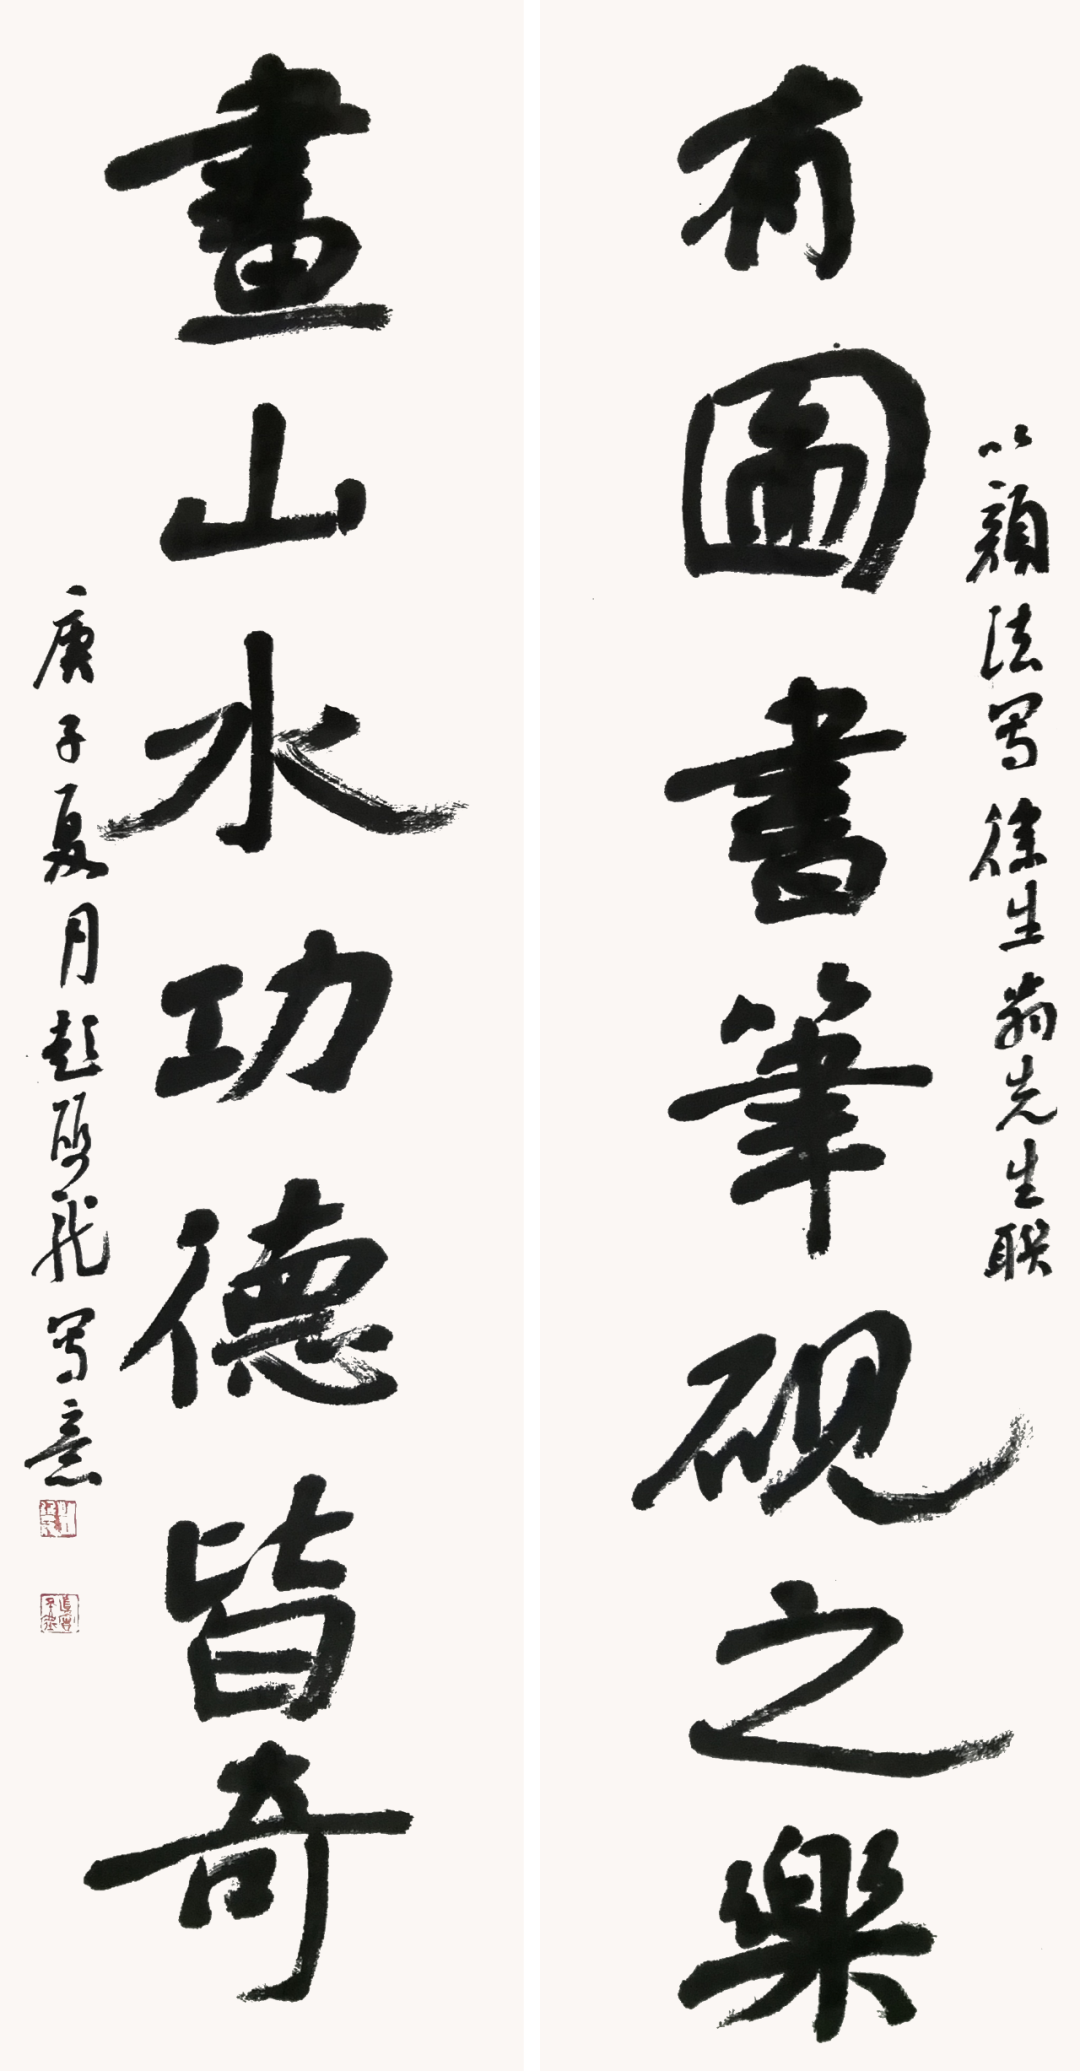 以顏法寫徐生翁先生联
有圖書筆硯之樂
畫山水功德皆奇
庚子夏月彭雙龍寫意